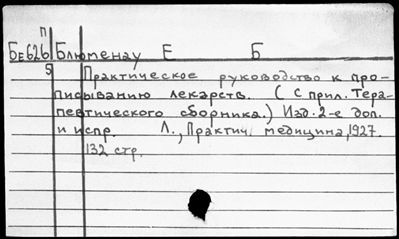 П
БЕ626 Блюменау Е Б
5
Практическое руководство к про-
писыванию лекарств. (С прил. Тера-
певтического сборника.) Изд. 2-е доп.
и испр. Л., Практич. медицина, 1927.
132 стр.